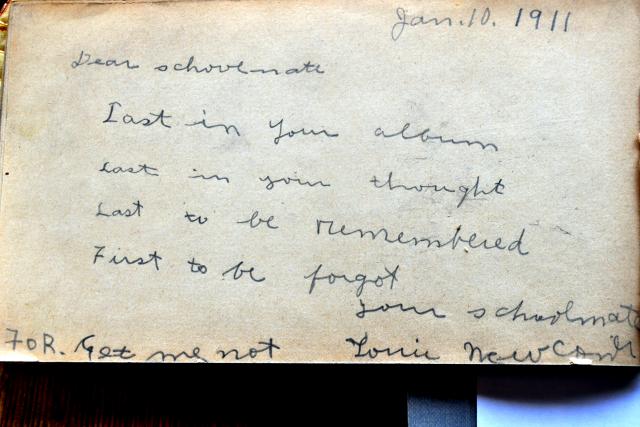 Jan. 10. 1911
Dear schoolmate
Last in your album
Last in your thought
Last to be remembered
First to be forgot
your schoolmate
FOR. Get me not